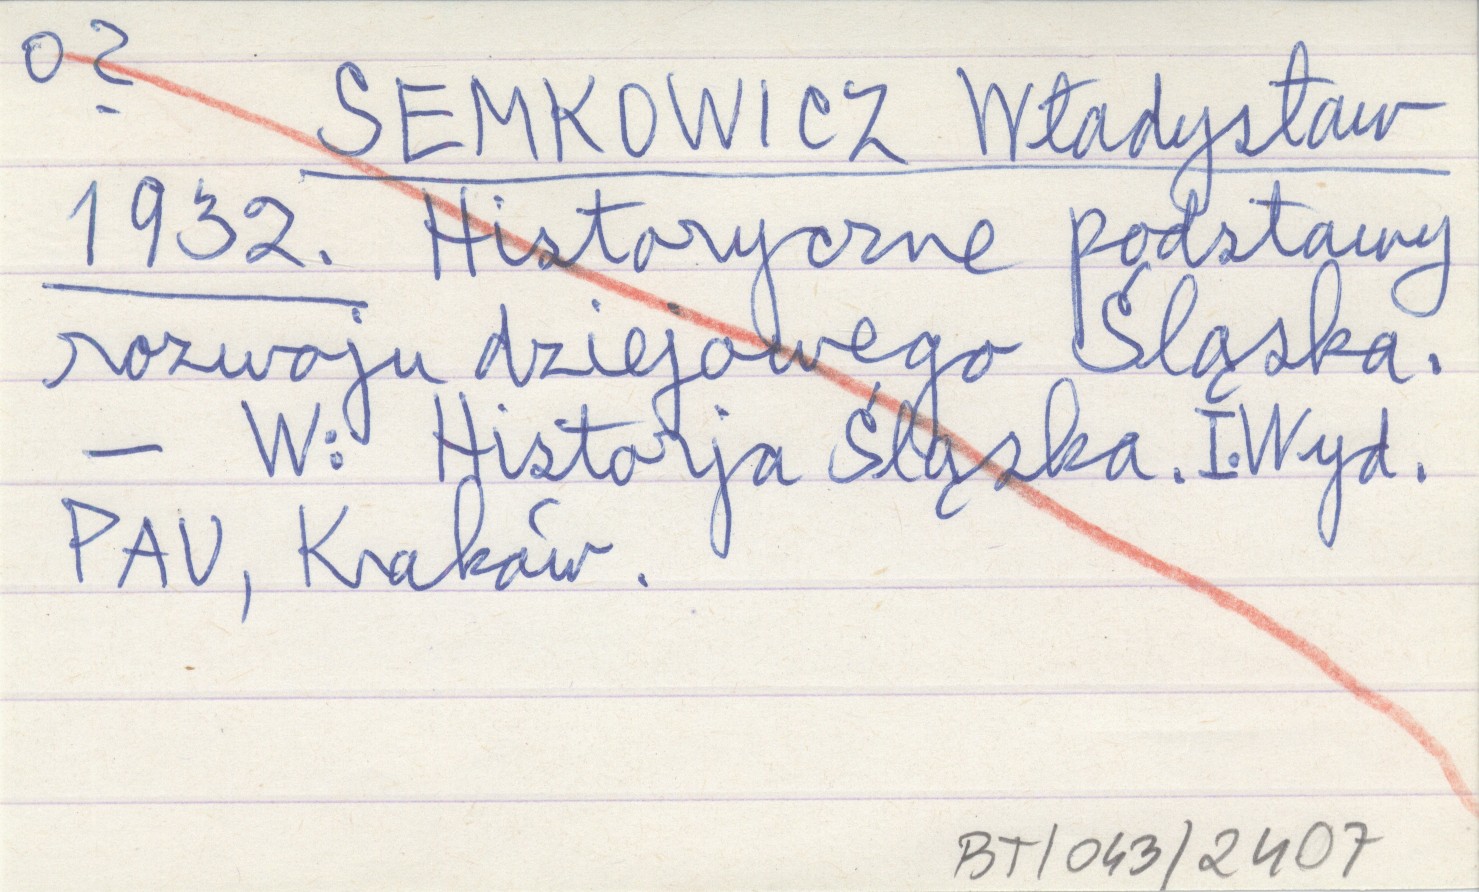 o?
SEMKOWICZ Władysław
1932. Historyczne podstawy
rozwoju dziejowego Śląska.
— W: Historja Śląska. I. Wyd.
PAU, Kraków.
BT/043/2407